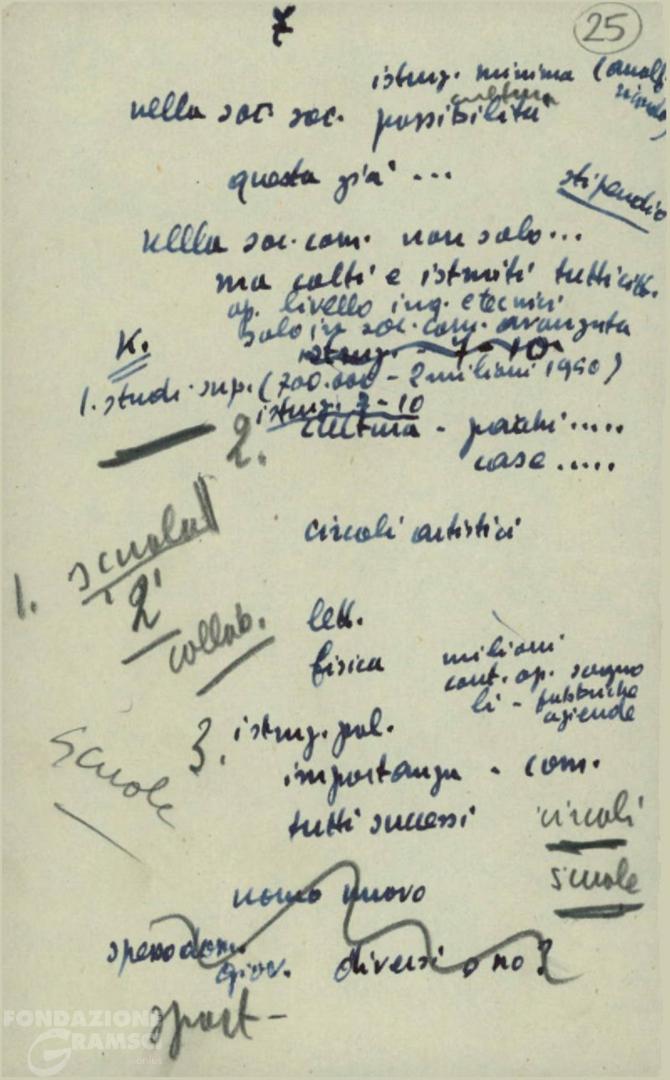 7
25
istruz. minima (analf.
cultura
nella soc. soc. possibilità
questa già ...
stipendio
nella soc. com. non solo...
ma colti e istruiti tutti citt.
op. livello ing. e tecnici
solo in soc. com. avanzata
istruz. - 7 - 10
K.
1. studi sup. (700.000 - 2 milioni 1940)
istruz. 7 - 10
2. cultura - parchi.....
case.....
circoli artistici
1. scuola
2
collab.
lett.
fisica
milioni
cont. op. sanno
li - fabbriche
aziende
3. istruz. pol.
scuole
importanza - com.
tutti successi
circoli
scuole
uomo nuovo
spesso dom.
giov. diversi o no?
sport -
FONDAZIONE
GRAMSCI
onlus